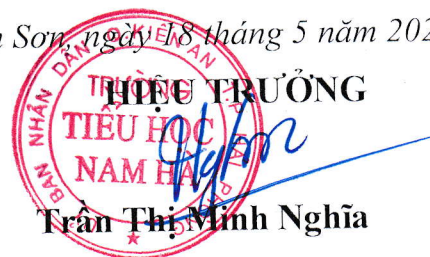 Sơn, ngày 18 tháng 5 năm 202
HIỆU TRƯỞNG
BAN NHÂN DÂN Q.KIẾN AN T.P HẢI PHÒNG
TRƯỜNG
TIỂU HỌC
NAM HÀ
Trần Thị Minh Nghĩa